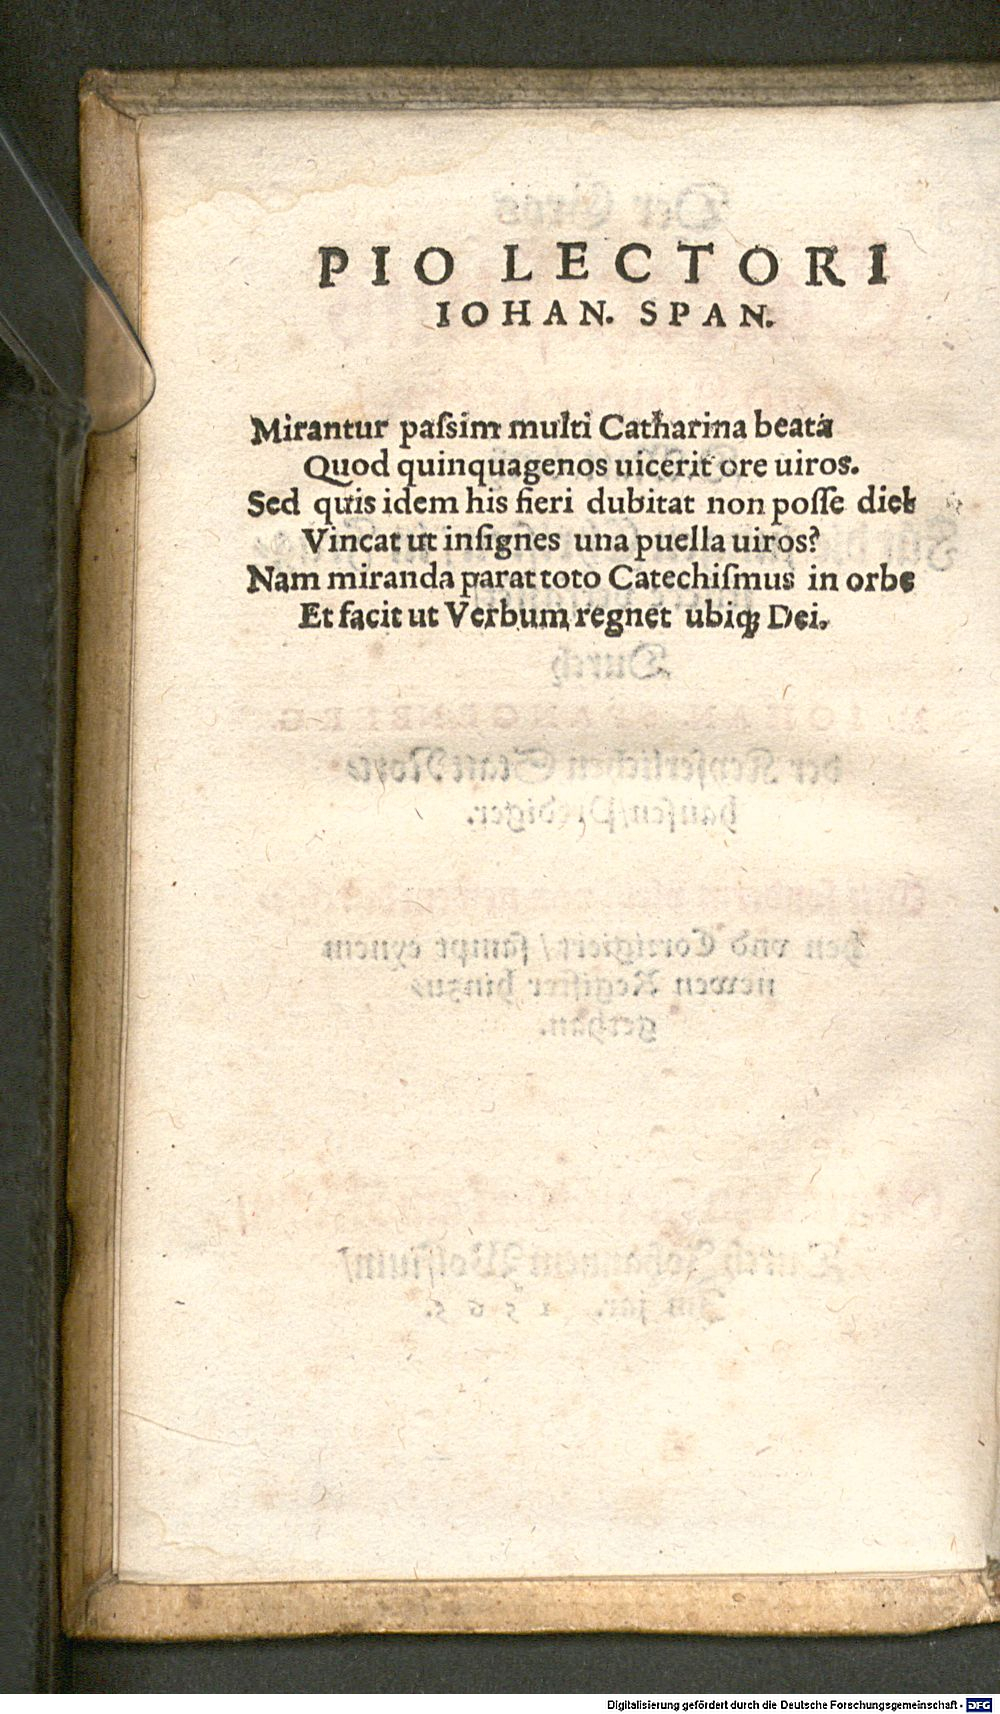 PIO LECTORI
IOHAN. SPAN.
Mirantur paſsim multi Catharina beata
Quod quinquagenos uicerit ore uiros.
Sed quis idem his fieri dubitat non poſſe dieb
Vincat ut inſignes una puella uiros?
Nam miranda parat toto Catechiſmus in orbe
Et facit ut Verbum regnet ubiqꝫ Dei.
Digitalisierung gefördert durch die Deutsche Forschungsgemeinschaft - DFG